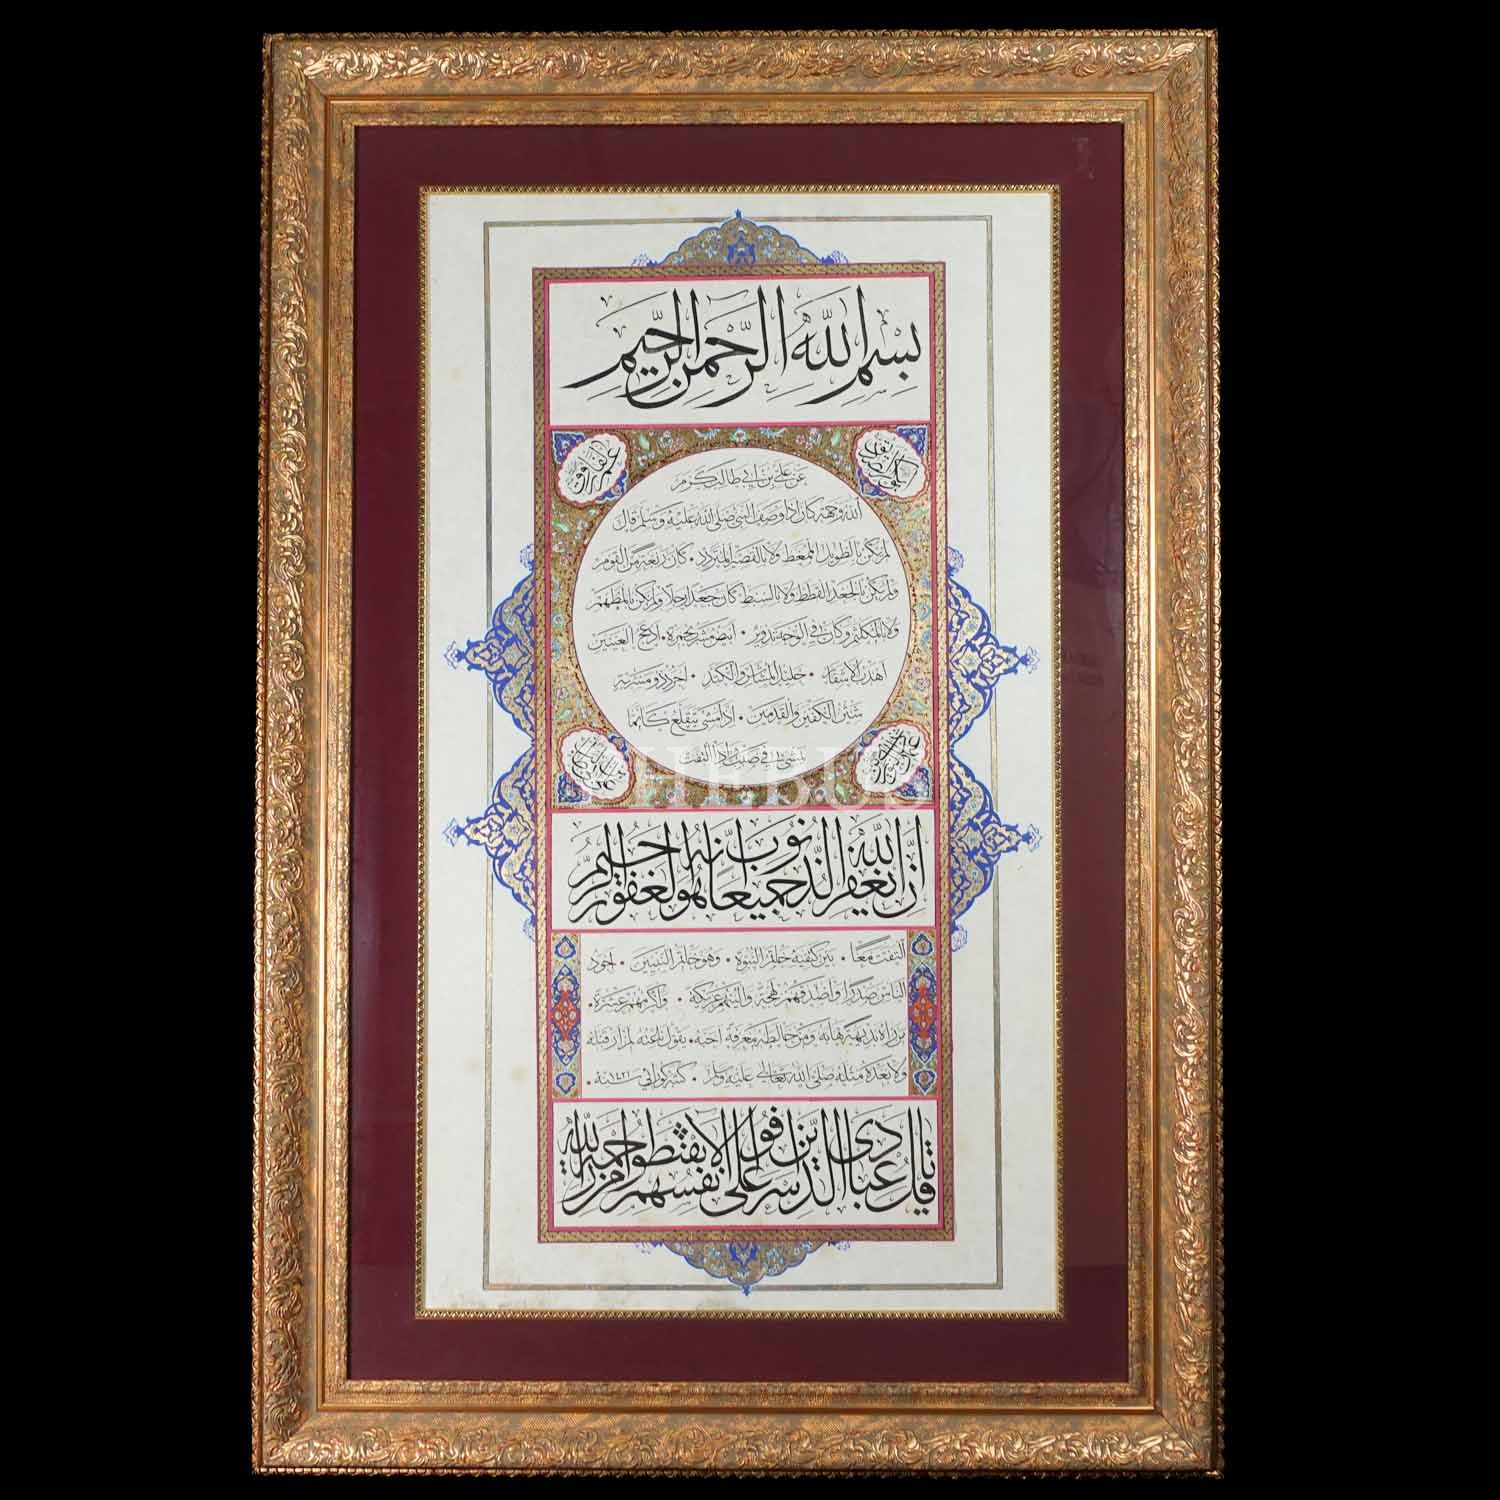 بِسْمِ اللّٰهِ الرَّحْمٰنِ الرَّحِيمِ
عن علي بن أبي طالب كرم
الله وجهه كان إذا وصف النبي صلى الله عليه وسلم قال
لم يكن بالطويل الممغط ولا بالقصير المتردد • كان ربعة من القوم
ولم يكن بالجعد القطط ولا بالسبط كان جعدا رجلا ولم يكن بالمطهم
ولا بالمكلثم وكان في الوجه تدوير • أبيض مشرب بحمرة • أدعج العينين
أهدب الأشفار • جليل المشاش والكتد • أجرد ذو مسربة
شثن الكفين والقدمين • إذا مشى يتقلع كأنما
يمشي في صبب وإذا التفت
إن الله يغفر الذنوب جميعا إنه هو الغفور الرحيم
التفت معا • بين كتفيه خاتم النبوة • وهو خاتم النبيين • أجود
الناس صدرا وأصدقهم لهجة وألينهم عريكة • وأكرمهم عشرة •
من رآه بديهة هابه ومن خالطه معرفة أحبه • يقول ناعته لم أر قبله
ولا بعده مثله صلى الله تعالى عليه وسلم •
قل يا عبادي الذين أسرفوا على أنفسهم لا تقنطوا من رحمة الله
HEBUS